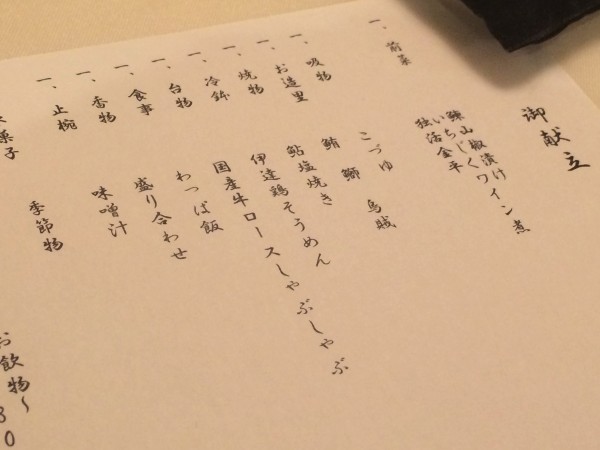 御献立
一、前菜
鰊山椒漬け
いちじくワイン煮
独活金平
一、吸物 こづゆ
一、お造里 鮪 鰤 烏賊
一、焼物 鮎塩焼き
一、冷鉢 伊達鶏そうめん
一、台物 国産牛ロースしゃぶしゃぶ
一、食事 わっぱ飯
一、香物 盛り合わせ
一、止椀 味噌汁
菓子 季節物
お飲物～
80